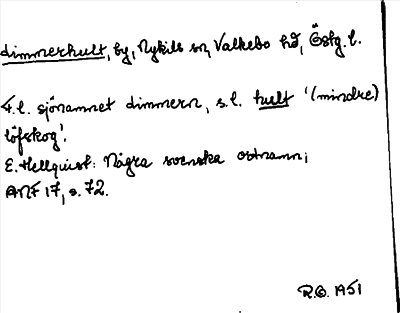 dimmerhult, by, Nykils sn, Valkebo hd, Östg. l.
F.l. sjönamnet dimmern, s.l. hult '(mindre)
löfskog'.
E. Hellquist: Några svenska ortnamn;
ANF 17, s. 72.
R.G. 1951